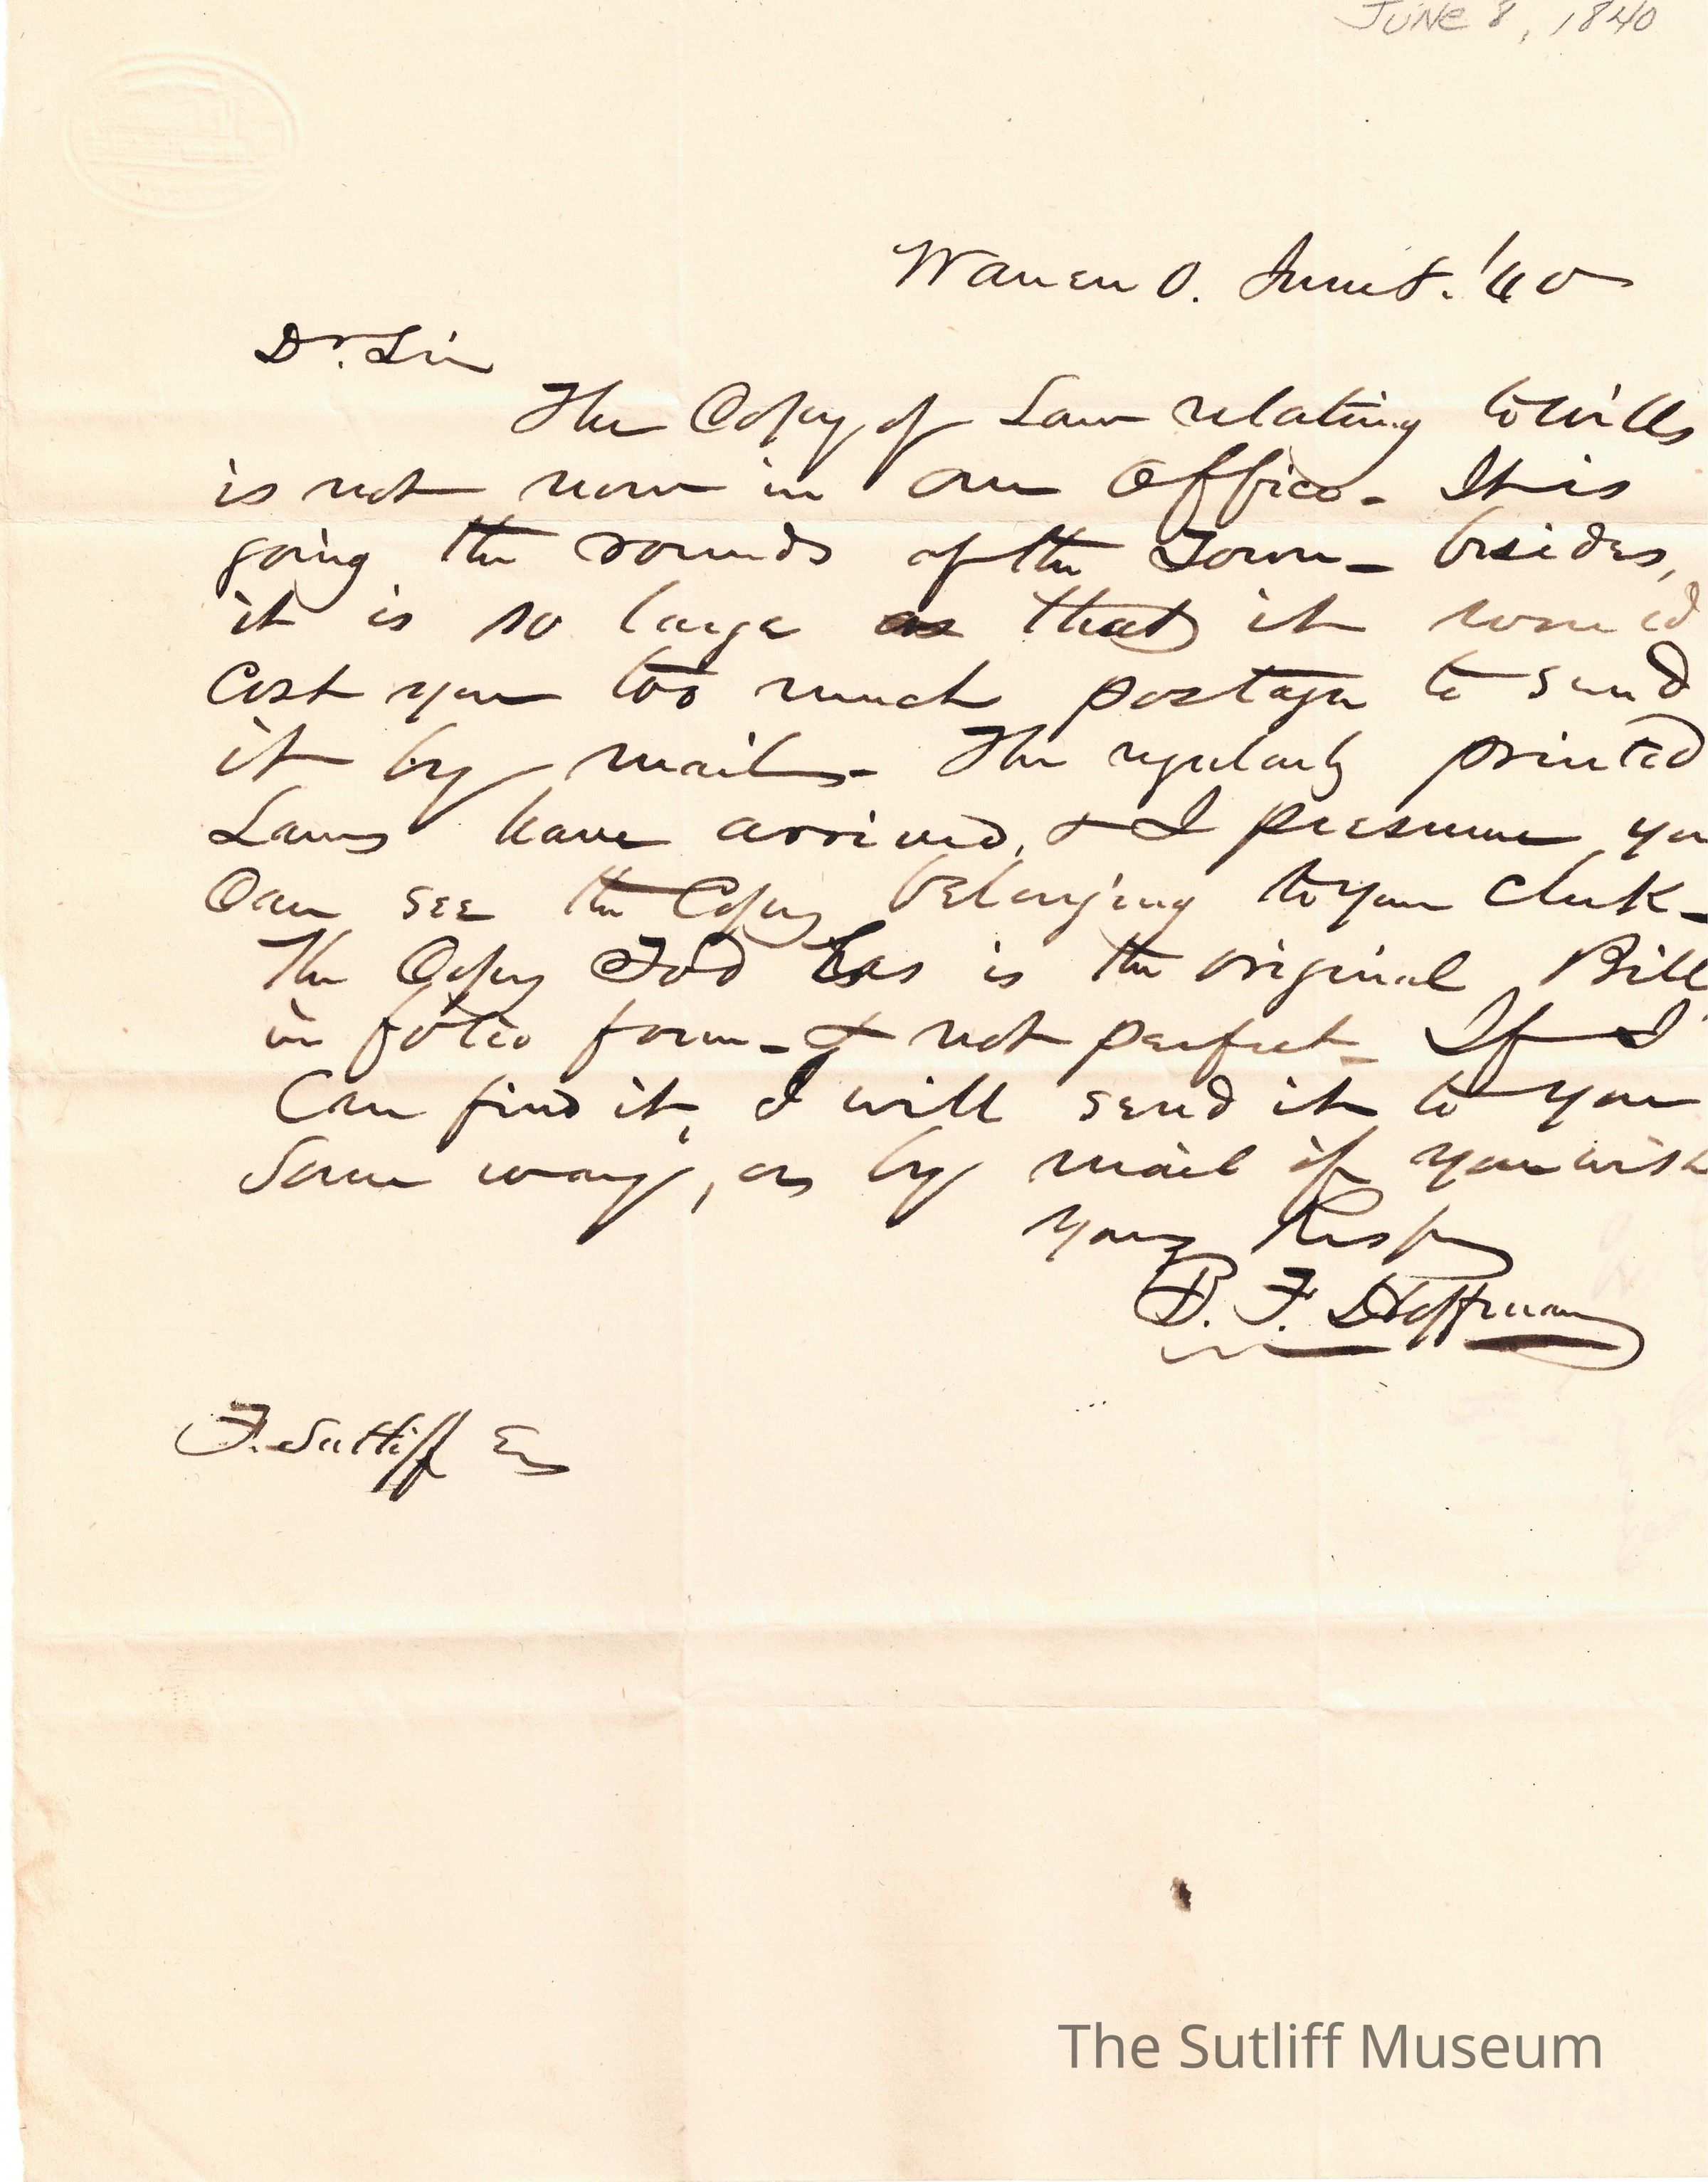 JUNE 8, 1840
Warren O. June 8. '40
Dr. Sir
The Copy of Law relating to Wills
is not now in our Office - It is
going the rounds of the Town - besides,
it is so large as that it would
Cost you too much postage to send
it by mail - The regularly printed
Laws have arrived, & I presume you
Can see the Copy belonging to your Clerk -
The Copy Tod has is the original Bill
in folio form - & not perfect - If I
Can find it, I will send it to you
Some way, or by mail if you wish
Yours Respy
B. F. Hoffman
F. Sutliff Esq
The Sutliff Museum